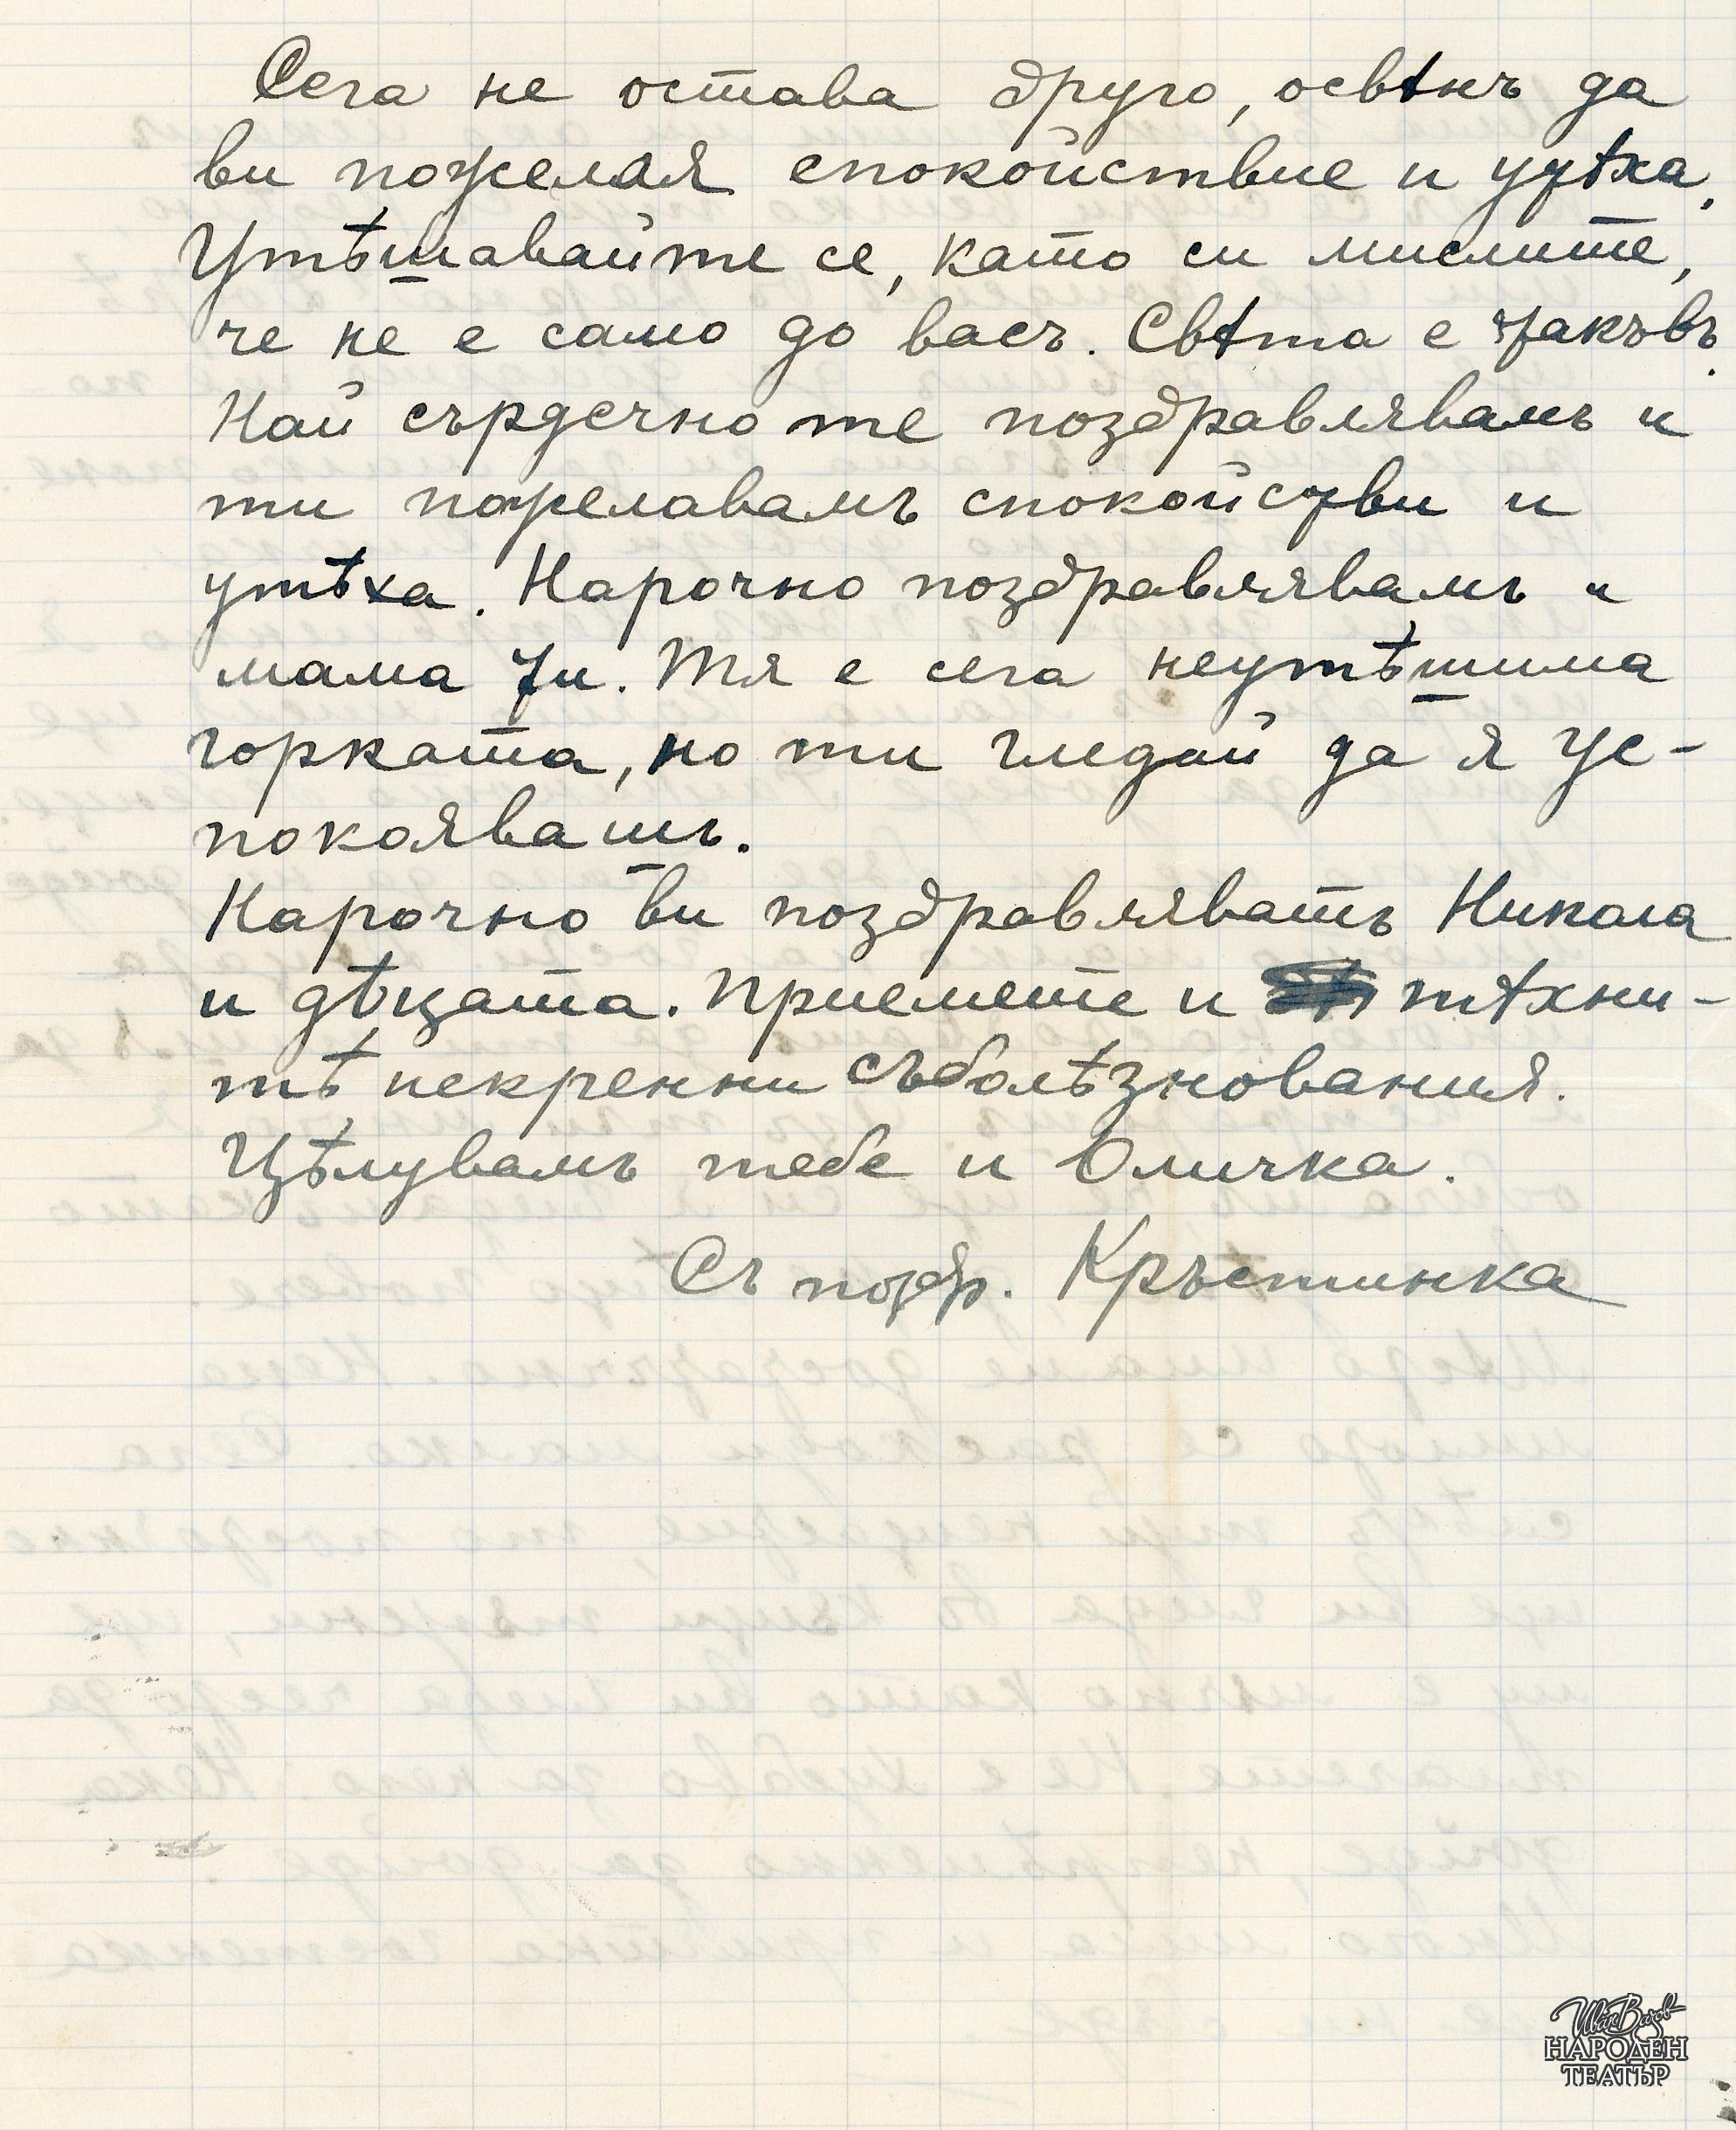 Сега не остава друго, освѣнъ да
ви пожелая спокойствие и утѣха.
Утѣшавайте се, като си мислите,
че не е само до васъ. Свѣта е такъвъ.
Най сърдечно те поздравлявамъ и
ти пожелавамъ спокойстви и
утѣха. Нарочно поздравлявамъ и
мама ти. Тя е сега неутѣшима
горката, но ти гледай да я ус-
покоявашъ.
Нарочно ви поздравляватъ Никола
и дѣцата. Приемете и тѣхни-
тѣ искренни съболѣзнования.
Цѣлувамъ тебе и Оличка.
Съ поздр. Кръстинка
Иван Вазов
НАРОДЕН
ТЕАТЪР